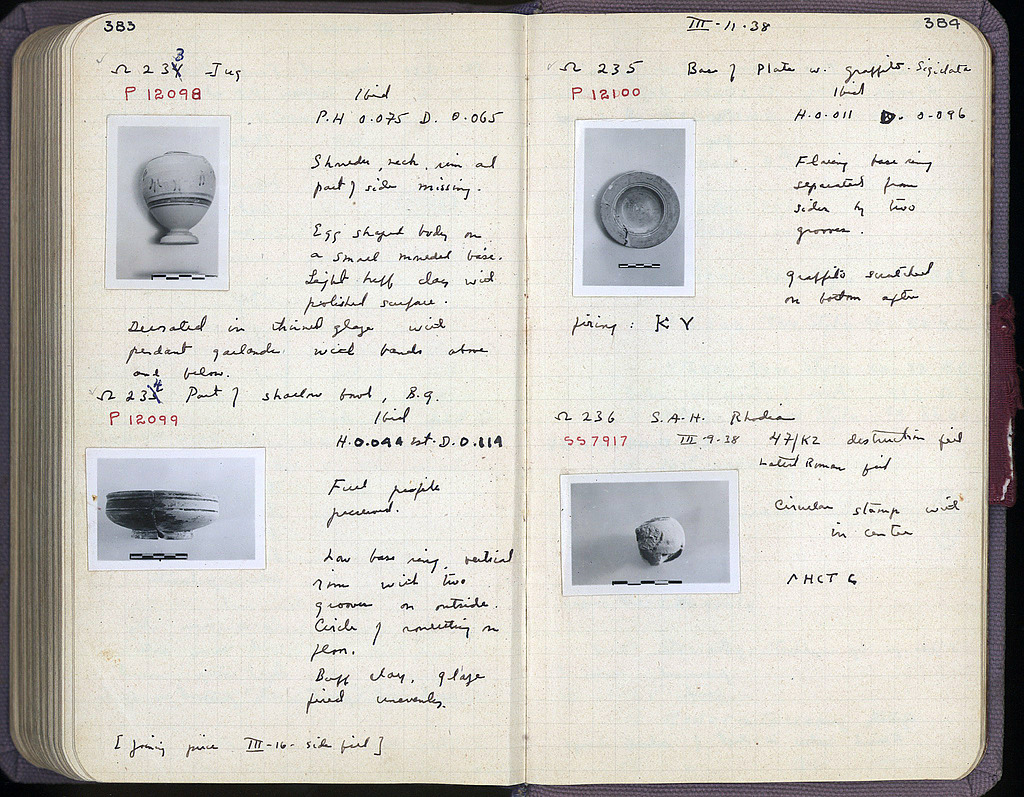 383
Ω 233 Jug
P 12098
Ibid
P.H 0.075 D. 0.065
Shoulder, neck, rim and
part of side missing.
Egg shaped body on
a small moulded base.
Light buff clay with
polished surface.
Decorated in thinned glaze with
pendant garlands with bands above
and below.
Ω 234 Part of shallow bowl, B.g.
P 12099
Ibid
H. 0.044 est. D. 0.114
Full profile
preserved.
Low base ring, vertical
rim with two
grooves on outside.
Circle of rouletting on
floor.
Buff clay, glaze
fired unevenly.
[ Joining piece III-16- side fill ]
III-11-38
384
Ω 235 Base of Plate w. graffito - Sigillata
P 12100
Ibid
H. 0.011 D. 0.096
Flaring base ring
separated from
sides by two
grooves.
graffito scratched
on bottom after
firing : K Y
Ω 236 S.A.H. Rhodian
SS 7917
III-9-38 47/K2 destruction fill
Latest Roman fill
Circular stamp with
in center